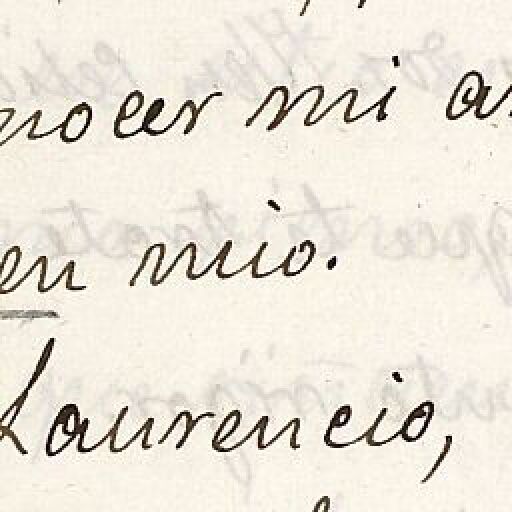 nocer mi a
en mio.
Laurencio,